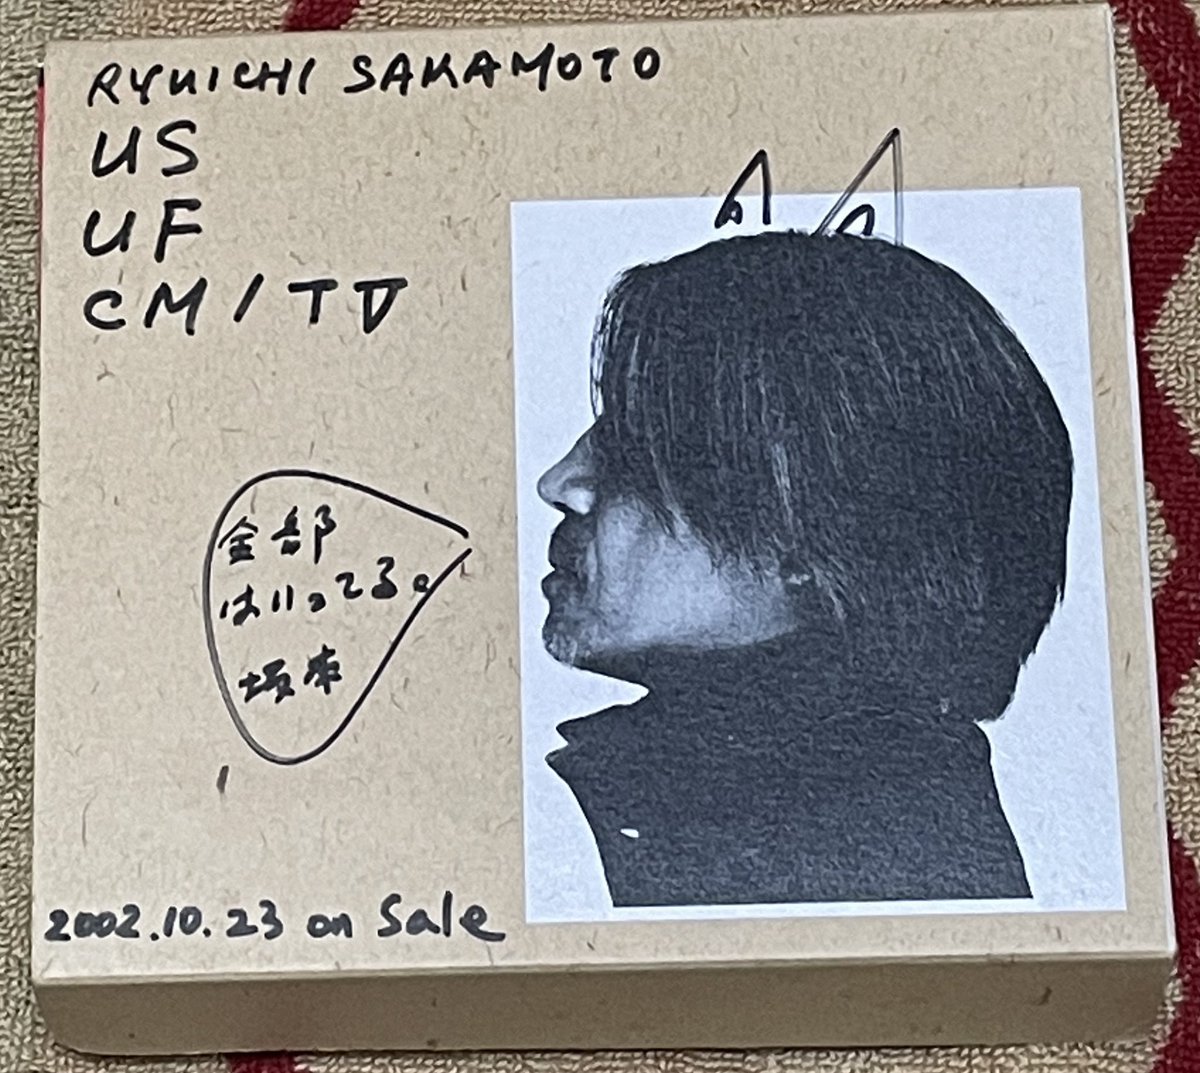 RYUICHI SAKAMOTO
US
UF
CM/TV
全部
はいってる。
坂本
2002.10.23 on Sale